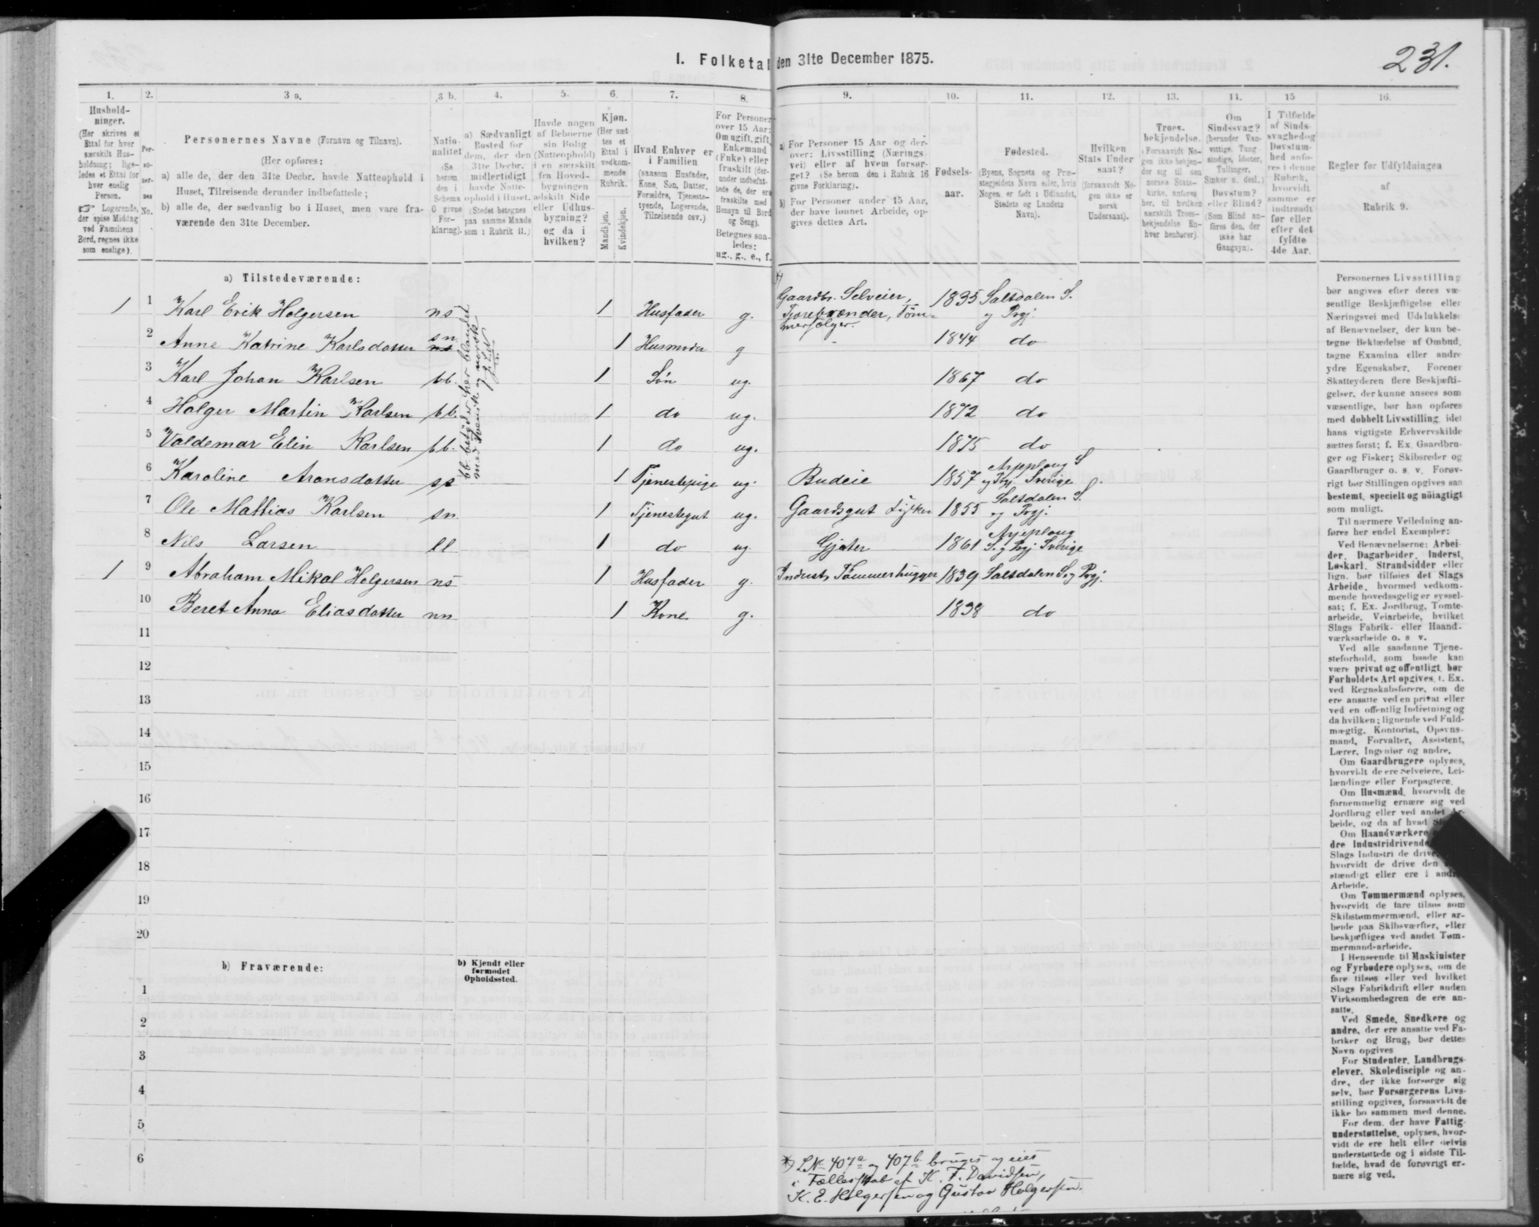 231.
I. Folketal den 31te December 1875.
1. 2. 3 a. 3 b. 4. 5. 6. 7. 8. 9. 10. 11. 12. 13. 14. 15 16.
Hushold-
ninger.
(Her skrives et
Ettal for hver
særskilt Hus-
holdning; lige-
ledes et Ettal for
hver enslig
Person.
☞ Logerende,
der spise Middag
ved Familiens
Bord, regnes ikke
som enslige).
Per-
so-
ner-
nes
No.
Personernes Navne (Fornavn og Tilnavn).
(Her opføres:
a) alle de, der den 31te Decbr. havde Natteophold i
Huset, Tilreisende derunder indbefattede;
b) alle de, der sædvanlig bo i Huset, men vare fra-
værende den 31te December.
Natio-
nalitet
(Se
herom
den i
Schema
O givne
For-
klaring).
a) Sædvanligt
Bosted for
dem, der den
31te Decbr.
midlertidigt
havde Natte-
ophold i Huset.
(Stedet betegnes
paa samme Maade
som i Rubrik 11.)
Havde nogen
af Beboerne
sin Bolig
(Natteophold)
i en særskilt
fra Hoved-
bygningen
adskilt Side
eller Udhus-
bygning?
og da i
hvilken?
Kjøn.
(Her sæt-
tes et
Ettal i
vedkom-
mende
Rubrik.
Mandkjøn.
Kvindekjøn.
Hvad Enhver er
i Familien
(saasom Husfader,
Kone, Søn, Datter,
Forældre, Tjeneste-
tyende, Logerende,
Tilreisende osv.)
For Personer
over 15 Aar:
Om ugift, gift,
Enkemand
(Enke) eller
fraskilt (der-
under indbefat-
tede de, der er
fraskilte med
Hensyn til Bord
og Seng).
Betegnes saa-
ledes:
ug., g., e., f.
a) For Personer 15 Aar og der-
over: Livsstilling (Nærings-
vei) eller af hvem forsør-
get? (Se herom den i Rubrik 16
givne Forklaring).
b) For Personer under 15 Aar,
der have lønnet Arbeide, op-
gives dettes Art.
Fødsels-
aar.
Fødested.
(Byens, Sognets og Præ-
stegjeldets Navn eller, hvis
Nogen er født i Udlandet,
Stedets og Landets
Navn).
Hvilken
Stats Under
saat?
(forsaavidt No-
gen ikke er
norsk
Undersaat).
Troes-
bekjendelse.
(Forsaavidt No-
gen ikke bekjen-
der sig til den
norske Stats-
kirke, anføres
her, til hvilken
særskilt Troes-
bekjendelse En-
hver henhører).
Om
Sindssvag?
(herunder Van-
vittige, Tung-
sindige, Idioter,
Tullinger,
Sinker o. desl.)
Døvstum?
eller Blind?
(Som Blind an-
føres den, der
ikke har
Gangsyn).
I Tilfælde
af Sinds-
svaghed og
Døvstum-
hed anfø-
res i denne
Rubrik,
hvorvidt
samme er
indtraadt
før eller
efter det
fyldte
4de Aar.
Regler for Udfyldningen
af
Rubrik 9.
a) Tilstedeværende:
1 1 Karl Erik Holgersen ns 1 Husfader g. Gaardbr. Selveier, Tjærebrænder, Tøm-merfælger. 1835 Saltdalen S. og Prgj.
2 Anne Katrine Karlsdatter sn 1 Husmoder g 1844 do
3 Karl Johan Karlsen bb. 1 Søn ug. 1867 do
4 Holger Martin Karlsen bb. 1 do ug. 1872 do
5 Valdemar Elin Karlsen bb. 1 do ug. 1875 do
6 Karoline Aronsdatter ss 1 Tjenestepige ug. Budeie 1857 Arjeploug S og Prgj. Sverige
7 Ole Mathias Karlsen sn. 1 Tjenestegut ug. Gaardsgut Fisker 1855 Saltdalen S. og Prgj.
8 Nils Larsen ll 1 do ug Gjæter 1861 Arjeploug S. og Prgj Sverige
1 9 Abraham Mikal Holgersen ns 1 Husfader g. Inderst, Tømmerhugger 1839 Saltdalen S og Prgj.
10 Beret Anna Eliasdatter nn 1 Kone g. 1838 do
11
12
13
14
15
16
17
18
19
20
b) Fraværende:
b) Kjendt eller
formodet
Opholdssted.
1
2
3
4
5
6
*) LNo 407a og 407b bruges og eies
i Fællesskab af K. F. Davidsen,
K. E. Holgersen og Gustav Holgersen.
Personernes Livsstilling
bør angives efter deres væ-
sentlige Beskjæftigelse eller
Næringsvei med Udelukkelse
af Benævnelser, der kun be-
tegne Beklædelse af Ombud,
tagne Examina eller andre
ydre Egenskaber. Forener
Skatteyderen flere Beskjæfti-
gelser, der kunne ansees som
væsentlige, bør han opføres
med dobbelt Livsstilling, idet
hans vigtigste Erhvervskilde
sættes først; f. Ex. Gaardbru-
ger og Fisker; Skibsreder og
Gaardbruger o. s. v. Forøv-
rigt bør Stillingen opgives saa
bestemt, specielt og nøiagtigt
som muligt.
Til nærmere Veiledning an-
føres her endel Exempler:
Ved Benævnelserne: Arbei-
der, Dagarbeider, Inderst,
Løskarl, Strandsidder eller
lign. bør tilføies det Slags
Arbeide, hvormed vedkom-
mende hovedsagelig er syssel-
sat; f. Ex. Jordbrug, Tomte-
arbeide, Veiarbeide, hvilket
Slags Fabrik- eller Haand-
værksarbeide o. s. v.
Ved alle saadanne Tjene-
steforhold, som baade kan
være privat og offentligt, bør
Forholdets Art opgives, f. Ex.
ved Regnskabsførere, om de
ere ansatte ved en privat eller
ved en offentlig Indretning og
da hvilken; lignende ved Fuld-
mægtig, Kontorist, Opsyns-
mand, Forvalter, Assistent,
Lærer, Ingeniør og andre.
Om Gaardbrugere oplyses,
hvorvidt de ere Selveiere, Lei-
lændinge eller Forpagtere.
Om Husmænd, hvorvidt de
fornemmelig ernære sig ved
Jordbrug eller ved andet Ar-
beide, og da af hvad
Om Haandværkere
dre Industridrivende
Slags Industri de drive,
hvorvidt de drive den
stændigt eller ere i andres
Arbeide.
Om Tømmermænd oplyses,
hvorvidt de fare tilsøs som
Skibstømmermænd, eller ar-
beide paa Skibsværfter, eller
beskjæftiges ved andet Tøm-
mermandsarbeide.
I Henseende til Maskinister
og Fyrbødere oplyses, om de
fare tilsøs eller ved hvilket
Slags Fabrikdrift eller anden
Virksomhedsgren de ere an-
satte.
Ved Smede, Snedkere og
andre, der ere ansatte ved Fa-
briker og Brug, bør dettes
Navn opgives
For Studenter, Landbrugs-
elever, Skoledisciple og an-
dre, der ikke forsørge sig
selv, bør Forsørgerens Livs-
stilling opgives, forsaavidt de
ikke bo sammen med denne.
For dem, der have Fattig-
understøttelse, oplyses, hvor-
vidt de ere helt eller delvis
understøttede og i sidste Til-
fælde, hvad de forøvrigt er-
nære sig ved.